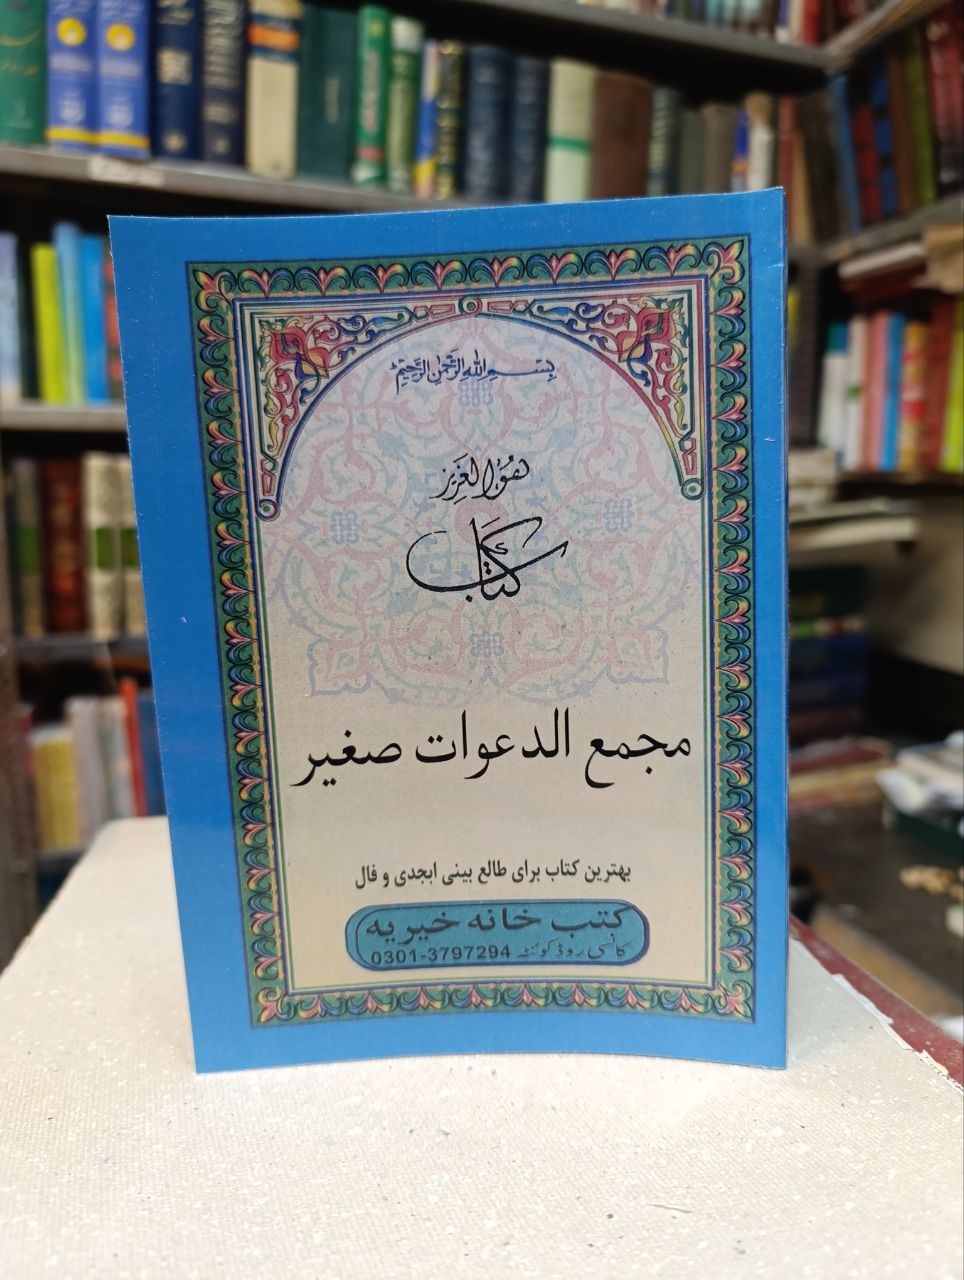 بسم الله الرحمن الرحیم
هو العزیز
کتاب
مجمع الدعوات صغیر
بهترین کتاب برای طالع بینی ابجدی و فال
کتب خانه خیریه
کانسی روڈ کوئٹہ 0301-3797294